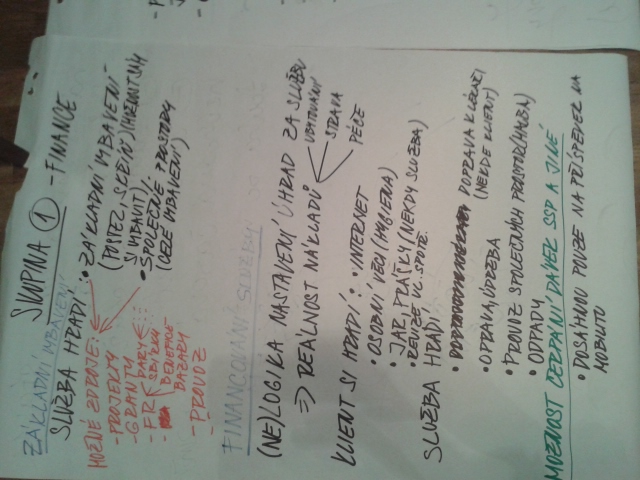 SKUPINA 1 - FINANCE
ZÁKLADNÍ VYBAVENÍ
SLUŽBA HRADÍ: • ZÁKLADNÍ VYBAVENÍ
(POSTEL, SKŘÍNĚ)
SI VYBAVIT)
• SPOLEČNÉ PROSTORY
(CELÉ VYBAVENÍ)
MOŽNÉ ZDROJE:
- PROJEKTY
- GRANTY
- FR DARY
SBÍRKY
BENEFICE
BAZARY
- PROVOZ
FINANCOVÁNÍ SLUŽBY
(NE)LOGIKA NASTAVENÍ ÚHRAD ZA SLUŽBU
⇒ REÁLNOST NÁKLADŮ
UBYTOVÁNÍ
STRAVA
PÉČE
KLIENT SI HRADÍ: • INTERNET
• OSOBNÍ VĚCI (HYGIENA)
• JAR, PRÁŠKY (NĚKDY SLUŽBA)
• REVIZE VL. SPOTŘ.
SLUŽBA HRADÍ:
• POPRAVA K LÉKAŘI
(NĚKDE KLIENT)
• OPRAVA, ÚDRŽBA
• PROVOZ SPOLEČNÝCH PROSTOR (MALBA)
• ODPADY
MOŽNOST ČERPÁNÍ DÁVEK SSP A JINÉ
• DOSÁHNOU POUZE NA PŘÍSPĚVEK NA
MOBILITU